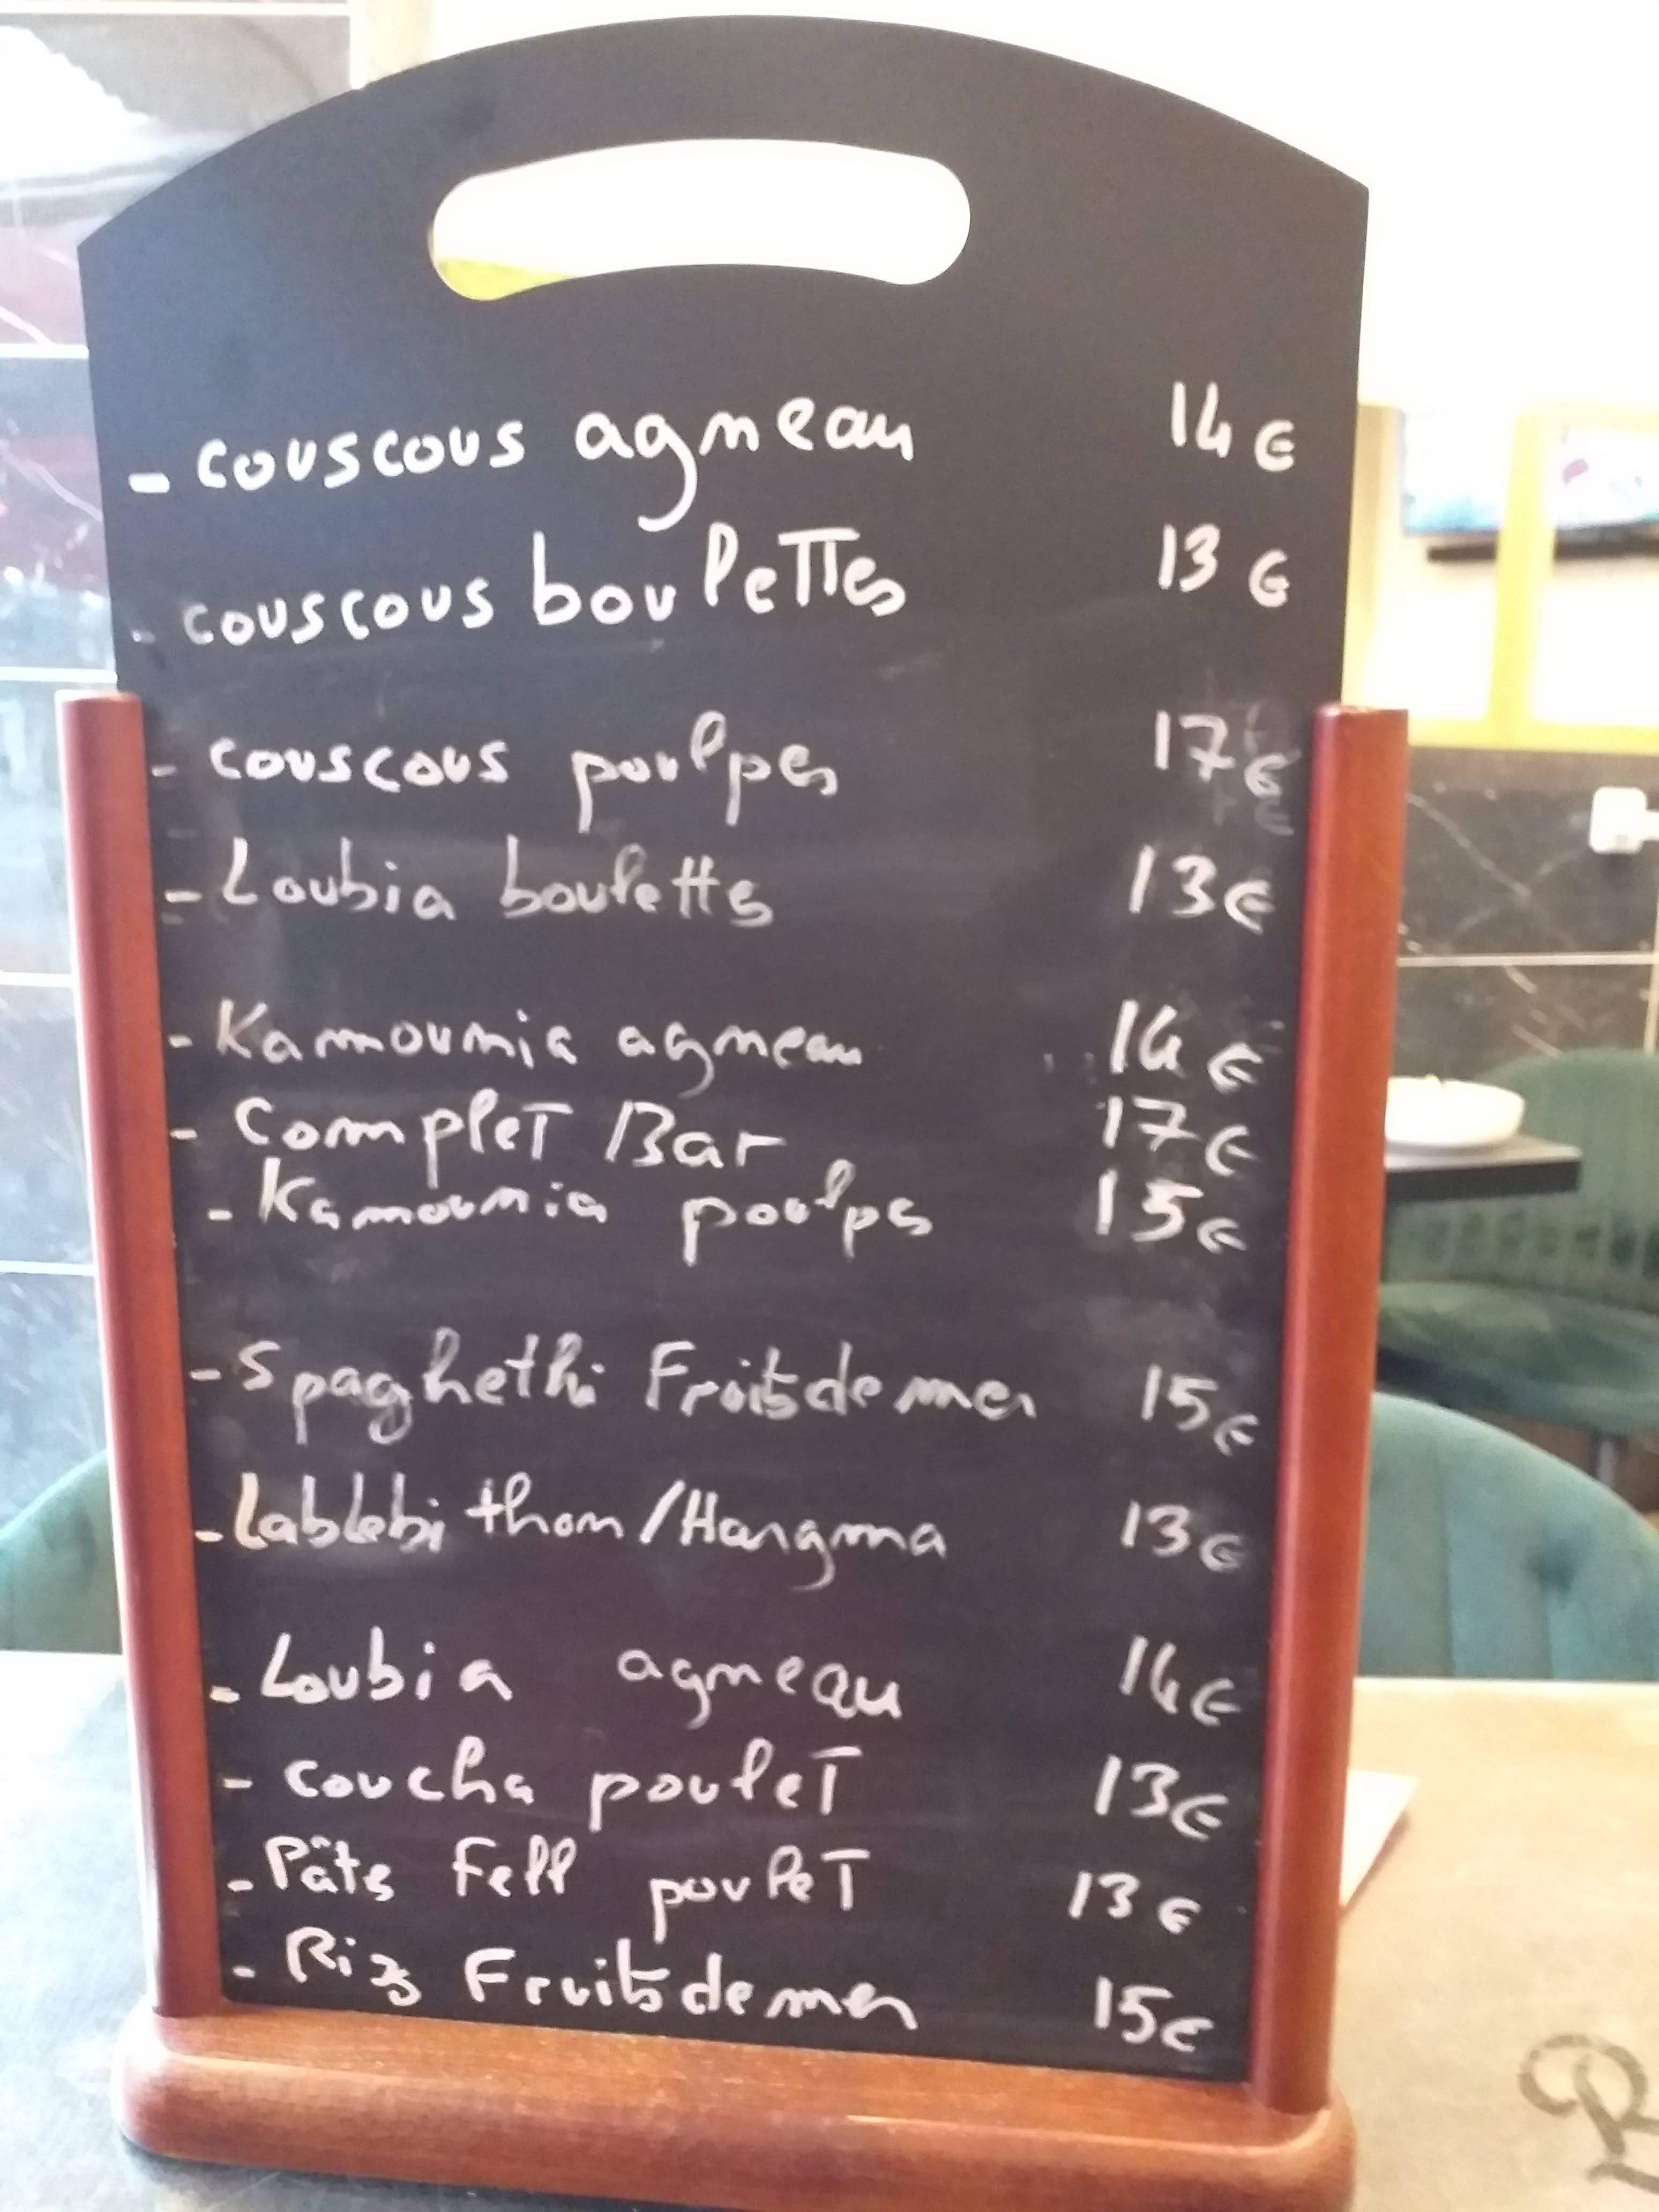 - couscous agneau 14€
- couscous boulettes 13€
- couscous poulpes 17€
- Loubia bouletts 13€
- Kamounia agneau 14€
- Complet Bar 17€
- Kamounia poulpes 15€
- Spaghethi Fruits de mer 15€
- Lablebi thon/Hargma 13€
- Loubia agneau 14€
- coucha poulet 13€
- Pâts Fell poulet 13€
- Riz Fruits de mer 15€